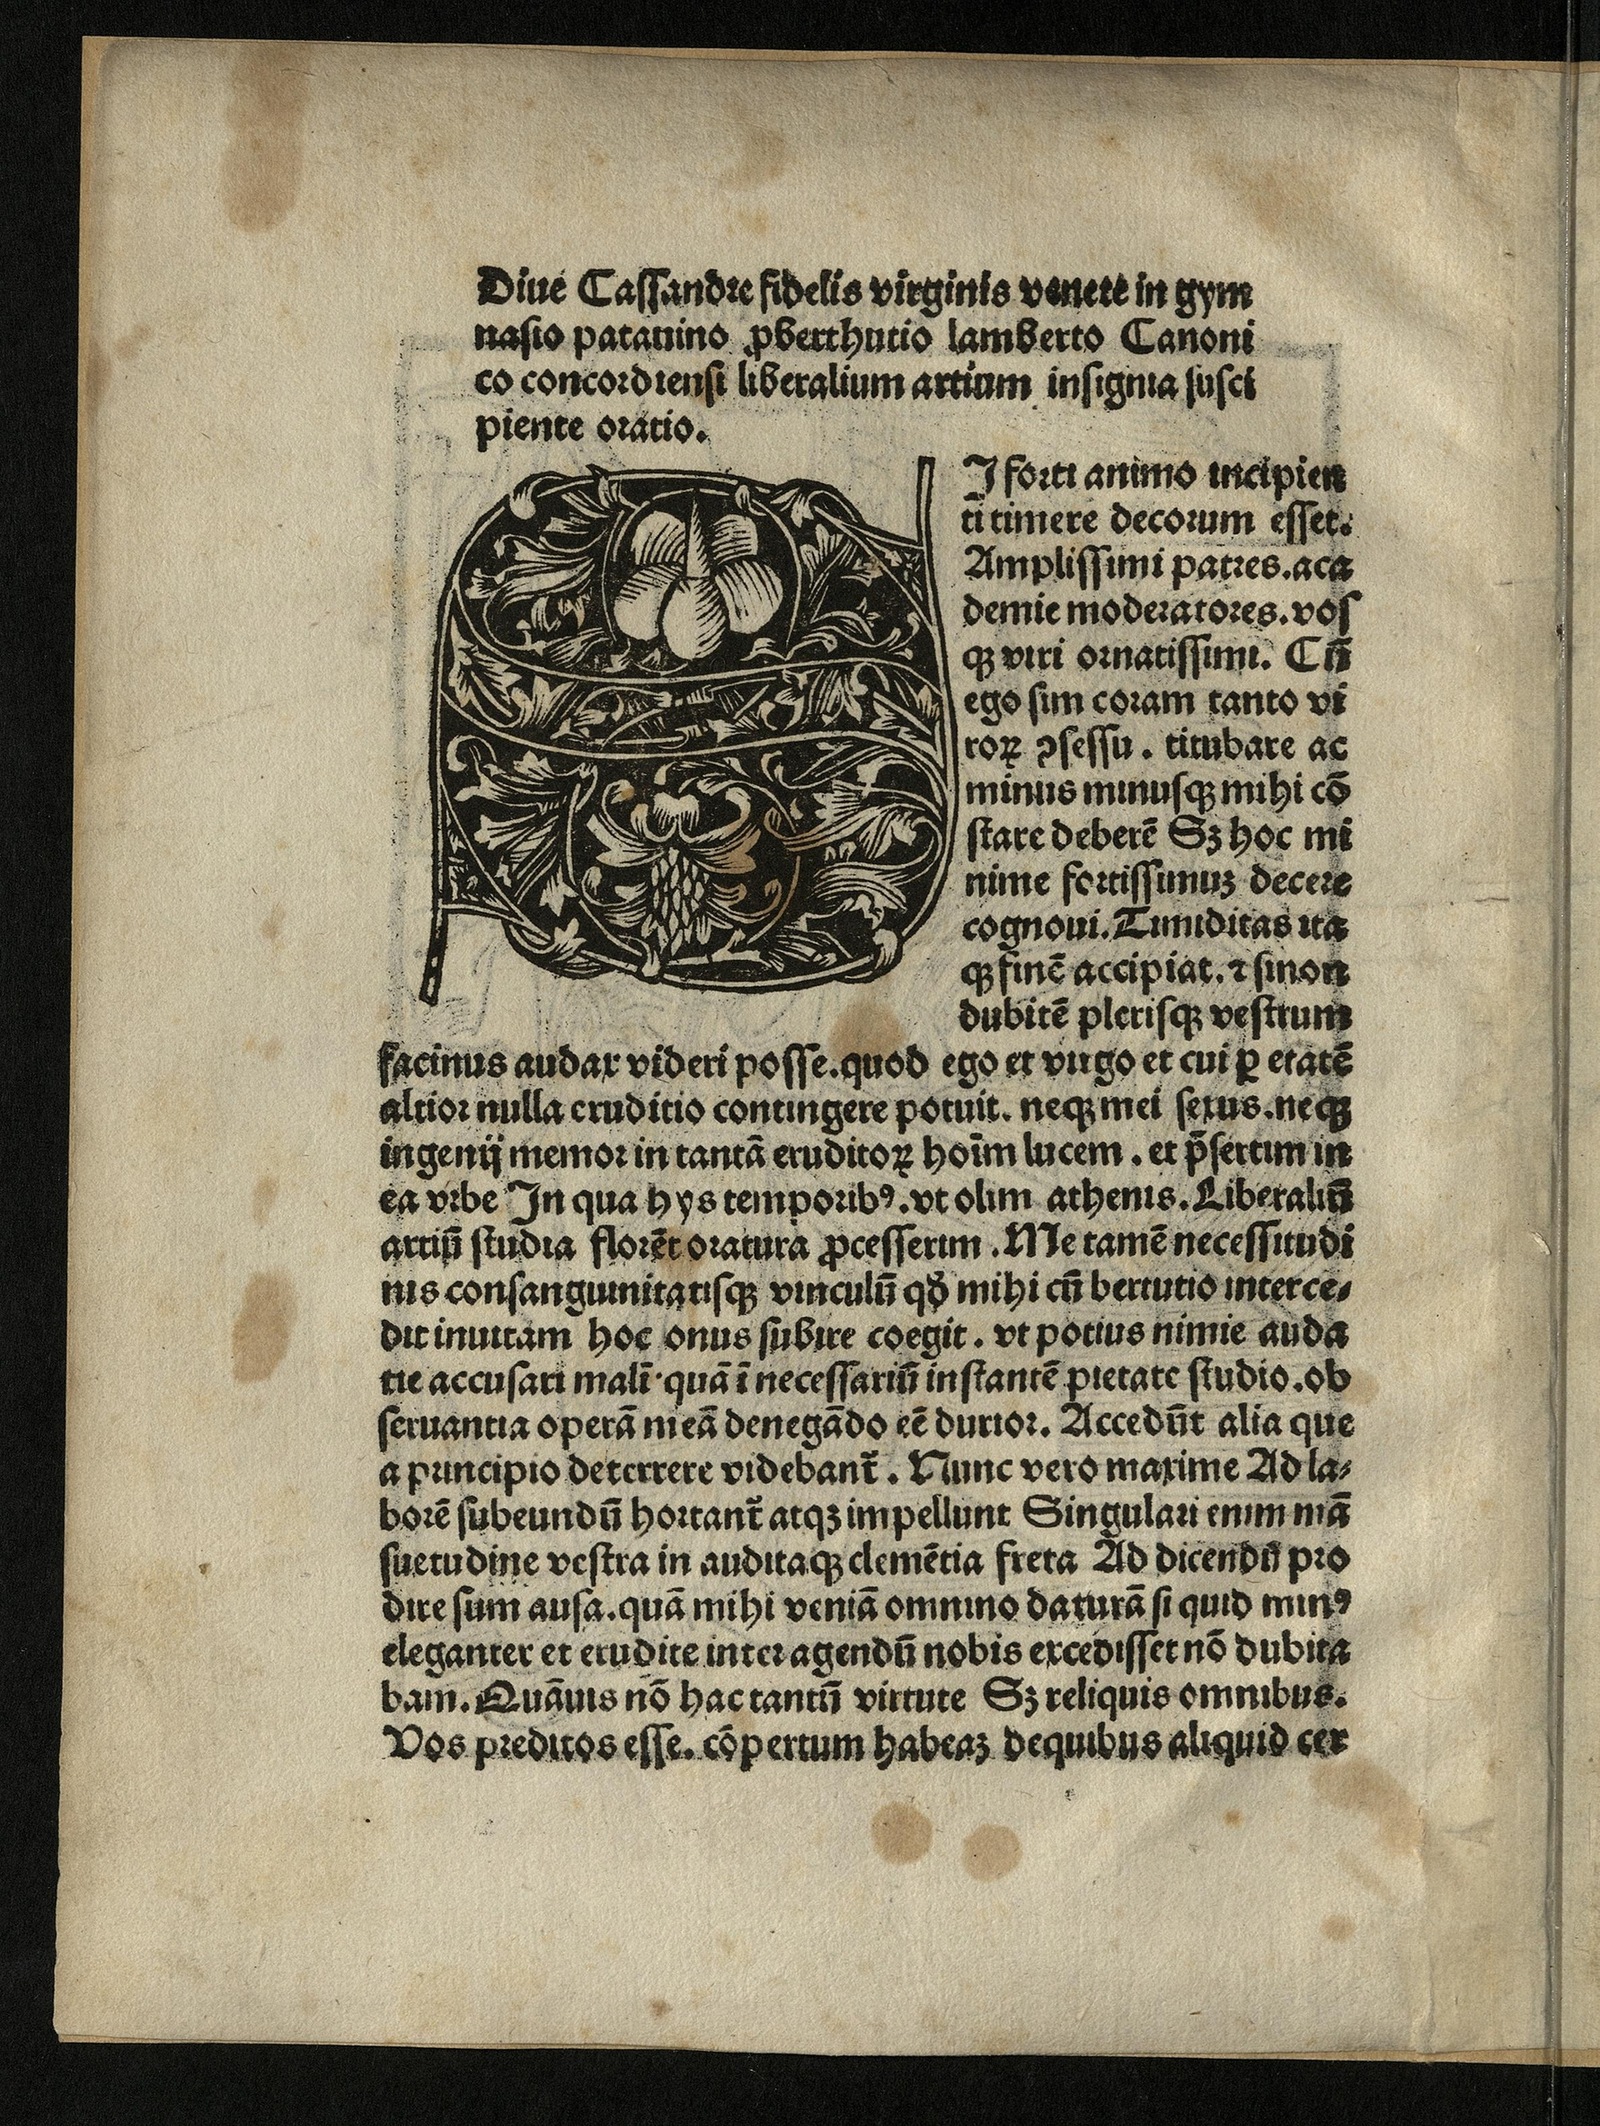 Diue Cassandre fidelis virginis venete in gym
nasio patauino ꝓberthutio lamberto Canoni
co concordiensi liberalium artium insignia susci
piente oratio.
SI forti animo incipien
ti timere decorum esset.
Amplissimi patres. aca
demie moderatores. vos
qꝫ viri ornatissimi. Cū
ego sim coram tanto vi
roꝝ ꝯsessu. titubare ac
minus minusqꝫ mihi cō
stare deberē Sꝫ hoc mi
nime fortissimuꝫ decere
cognoui. Timiditas ita
qꝫ finē accipiat. ⁊ sinon
dubitē plerisqꝫ vestrum
facinus audax videri posse. quod ego et virgo et cui ꝑ etatē
altior nulla eruditio contingere potuit. neqꝫ mei sexus. neqꝫ
ingenij memor in tantā eruditoꝝ hoīm lucem. et p̄sertim in
ea vrbe In qua hys temporibꝰ. vt olim athenis. Liberaliū
artiū studia florēt oratura ꝓcesserim. Me tamē necessitudi
nis consanguinitatisqꝫ vinculū qđ mihi cū bertutio interce⸗
dit inuitam hoc onus subire coegit. vt potius nimie auda
tie accusari malī· quā ī necessariū instantē pietate studio. ob
seruantia operā meā denegādo eē durior. Accedūt alia que
a principio deterrere videbant᷑. Nunc vero maxime Ad la⸗
borē subeundū hortant᷑ atqꝫ impellunt Singulari enim mā
suetudine vestra in auditaqꝫ clemētia freta Ad dicendū pro
dire sum ausa. quā mihi veniā omnino daturā si quid minꝰ
eleganter et erudite inter agendū nobis excedisset nō dubita
bam. Quāuis nō hac tantū virtute Sꝫ reliquis omnibus.
Vos preditos esse. cōpertum habeaꝫ dequibus aliquid cer